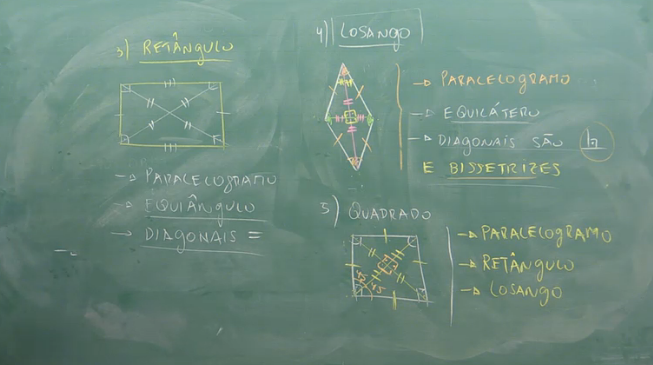 3) RETÂNGULO
→ PARALELOGRAMO
→ EQUIÂNGULO
→ DIAGONAIS =
4) LOSANGO
→ PARALELOGRAMO
→ EQUILÁTERO
→ DIAGONAIS SÃO
E BISSETRIZES
5) QUADRADO
45
45
→ PARALELOGRAMO
→ RETÂNGULO
→ LOSANGO